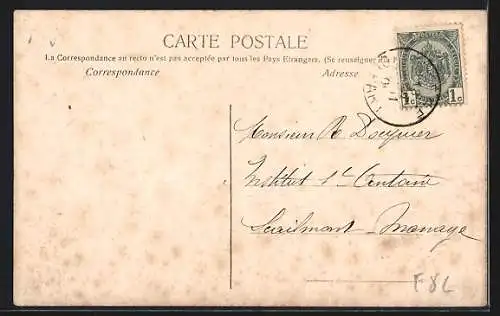 CARTE POSTALE
La Correspondance au recto n'est pas acceptée par tous les Pays Etrangers. (Se renseigner à la
Correspondance Adresse
1c 1c
Monsieur R
Institut
Seailmont-Manage
F8L